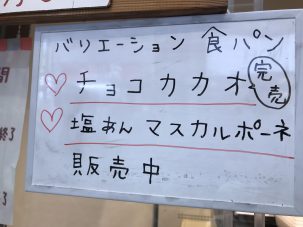 バリエーション 食パン
♡ チョコカカオ 完売
♡ 塩あん マスカルポーネ
販売中
間
終了